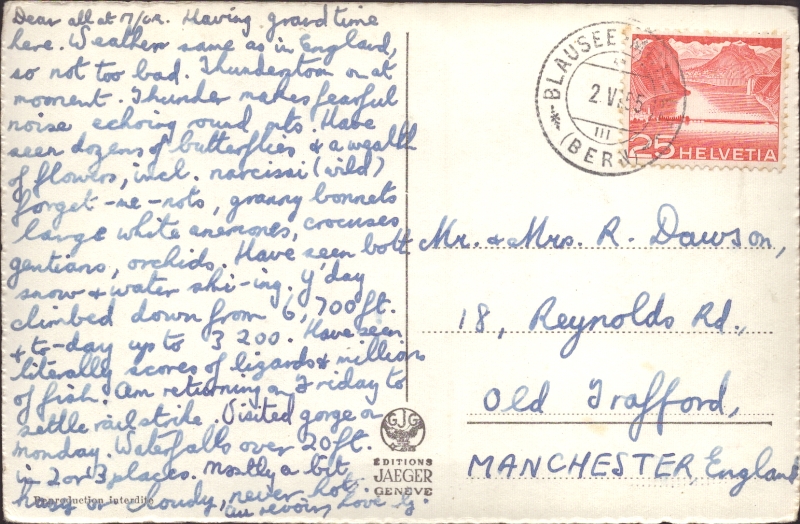 Dear all at M/CR. Having grand time
here. Weather same as in England,
so not too bad. Thunderstorm on at
moment. Thunder makes fearful
noise echoing round mts. Have
seen dozens of butterflies & a wealth
of flowers, incl. narcissi (wild)
forget-me-nots, granny bonnets
large white anemones, crocuses,
gentians, orchids. Have seen both
snow & water ski-ing. Y'day
climbed down from 6,700ft.
& to-day up to 3200. Have seen
literally scores of lizards & millions
of fish. Am returning on Friday to
settle rail strike. Visited gorge on
Monday. Waterfalls over 20ft.
in 2 or 3 places. Mostly a bit
hazy or cloudy, never hot.
Au revoir, Love
Reproduction Interdite
BLAUSEE
2.VI.55
III
(BERN)
25 HELVETIA
Mr. & Mrs. R. Dawson,
18, Reynolds Rd.,
Old Trafford,
MANCHESTER England
GJG
ÉDITIONS
JAEGER
GENÈVE